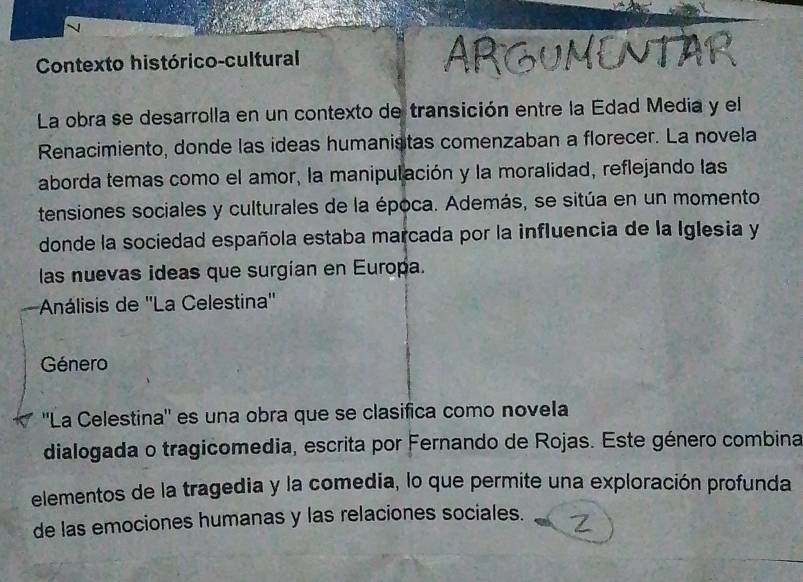 Contexto histórico-cultural ARGUMENTAR
La obra se desarrolla en un contexto de transición entre la Edad Media y el
Renacimiento, donde las ideas humanistas comenzaban a florecer. La novela
aborda temas como el amor, la manipulación y la moralidad, reflejando las
tensiones sociales y culturales de la época. Además, se sitúa en un momento
donde la sociedad española estaba marcada por la influencia de la Iglesia y
las nuevas ideas que surgían en Europa.
Análisis de "La Celestina"
Género
"La Celestina" es una obra que se clasifica como novela
dialogada o tragicomedia, escrita por Fernando de Rojas. Este género combina
elementos de la tragedia y la comedia, lo que permite una exploración profunda
de las emociones humanas y las relaciones sociales. 2